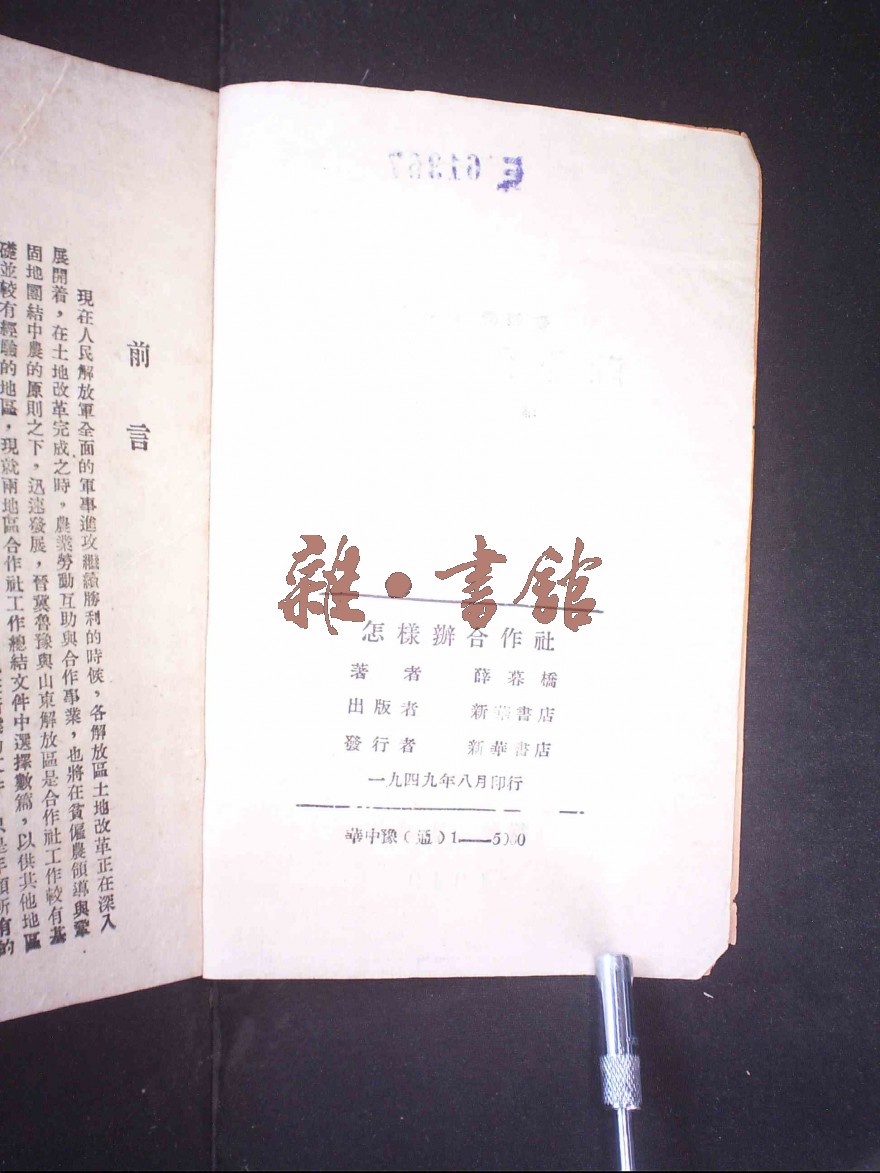 雜·書館
怎樣辦合作社
著者 薛暮橋
出版者 新華書店
發行者 新華書店
一九四九年八月印行
華中豫（逼）1——5000
前言
現在人民解放軍全面的軍事進攻繼續勝利的時候，各解放區土地改革正在深入
展開着，在土地改革完成之時，農業勞動互助與合作事業，也將在貧僱農領導與鞏
固地團結中農的原則之下，迅速發展，晉冀魯豫與山東解放區是合作社工作較有基
礎並較有經驗的地區，現就兩地區合作社工作總結文件中選擇數篇，以供其他地區